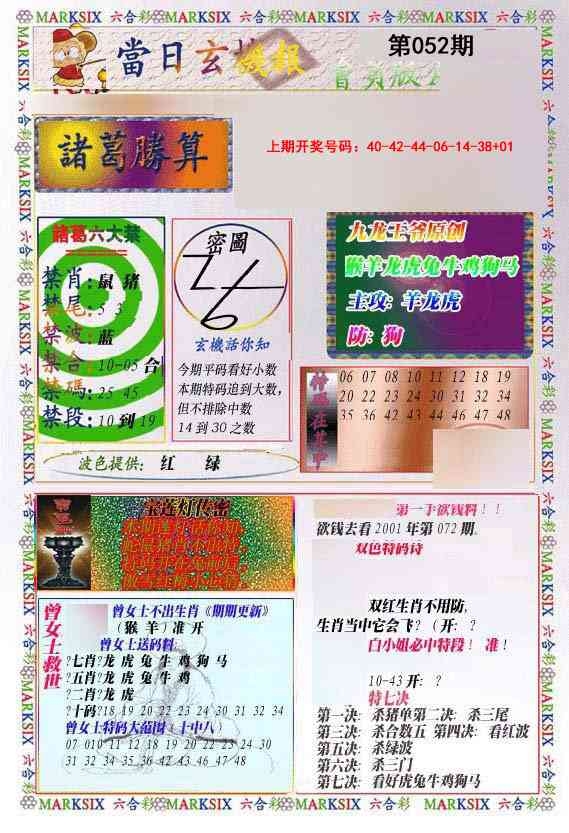 MARKSIX 六合彩 MARKSIX 六合彩 MARKSIX 六合彩 MARKSIX 六合彩 MARKSIX 六合彩
當日玄機報
第052期
諸葛勝算
上期开奖号码：40-42-44-06-14-38+01
諸葛六大禁
禁肖：鼠 猪
禁尾：5 3
禁波：蓝
禁合：10-05 合
禁碼：25 45
禁段：10到19
密圖
玄機話你知
今期平码看好小数
本期特码追到大数，
但不排除中数
14到30之数
九龙王爷原创
猴羊龙虎兔牛鸡狗马
主攻：羊龙虎
防：狗
特码在其中
06 07 08 10 11 12 18 19
20 22 23 24 30 31 32 34
35 36 42 43 44 46 47 48
波色提供： 红 绿
宝莲灯传密
曾女士救世
曾女士不出生肖《期期更新》
（猴 羊）准 开
曾女士送码料
?七肖?龙 虎 兔 牛 鸡 狗 马
?五肖?龙 虎 兔 牛 鸡
?二肖?龙 虎
?十码?18 19 20 22 23 24 30 31 32 34
曾女士特码大范围（十中八）
07 010 11 12 18 19 20 22 23 24 30
31 32 34 35 36 42 43 46 47 48
第一手欲钱料！！
欲钱去看2001年第072期。
双色特码诗
双红生肖不用防，
生肖当中它会飞？（开：？
白小姐必中特段！ 准！
10-43开：？
特七决
第一决：杀猪单第二决：杀三尾
第三决：杀合数五 第四决：看红波
第五决：杀绿波
第六决：杀三门
第七决：看好虎兔牛鸡狗马
MARKSIX 六合彩 MARKSIX 六合彩 MARKSIX 六合彩 MARKSIX 六合彩 MARKSIX 六合彩